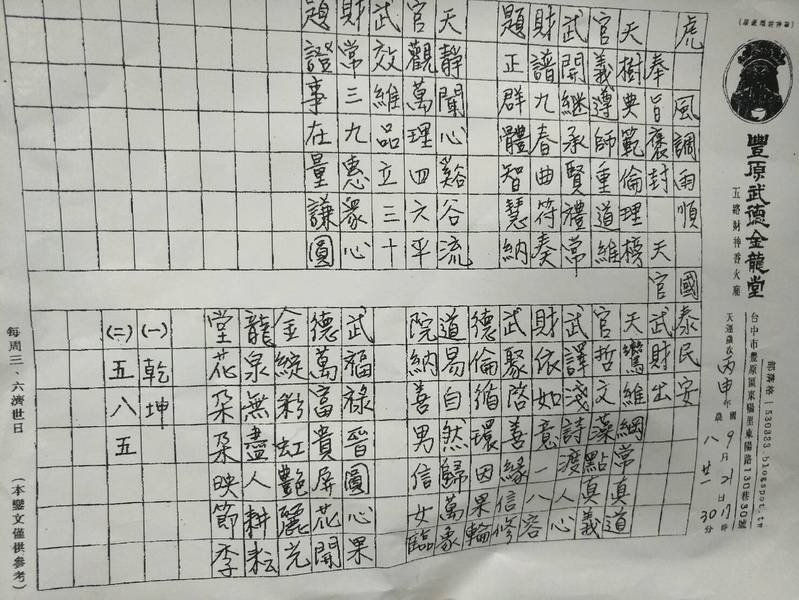 豐原武德金龍堂
五路財神香火廟
部落格1530333.blogspot.tw
台中市豐原區東陽里東陽路130巷30號
天運歲次丙申年 國9月21日17時
農八廿 30分
虎 風調雨順 國泰民安
奉旨褒封 天官武財出
天樹典範倫理榜
官義遵師重道維
武開繼承賢禮常
財譜九春曲符奏
題正群體智慧納
天靜聞心谿谷流
官觀萬理四六平
武效維品立三十
財常三九惠眾心
題證事在量謙圓
天鸞維綱常真道
官哲文藻點真義
武譯淺詩渡人心
財依如意一八容
武聚啓善緣信修
德倫循環因果輪
道易自然歸萬象
院納善男信女臨
武福祿晉圓心果
德萬富貴屏花開
金綻彩虹艷麗光
龍泉無盡人耕耘
堂花朵朵映節季
(一)乾坤
(二)五八五
每周三、六濟世日 (本鑾文僅供參考)